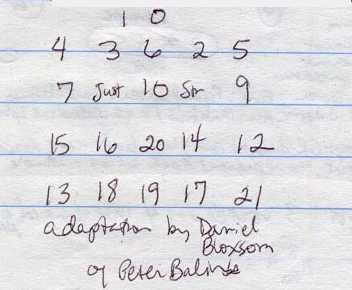 1 0
4 3 6 2 5
7 Just 10 Str 9
15 16 20 14 12
13 18 19 17 21
adaptation by Daniel
Bloxsom
of Peter